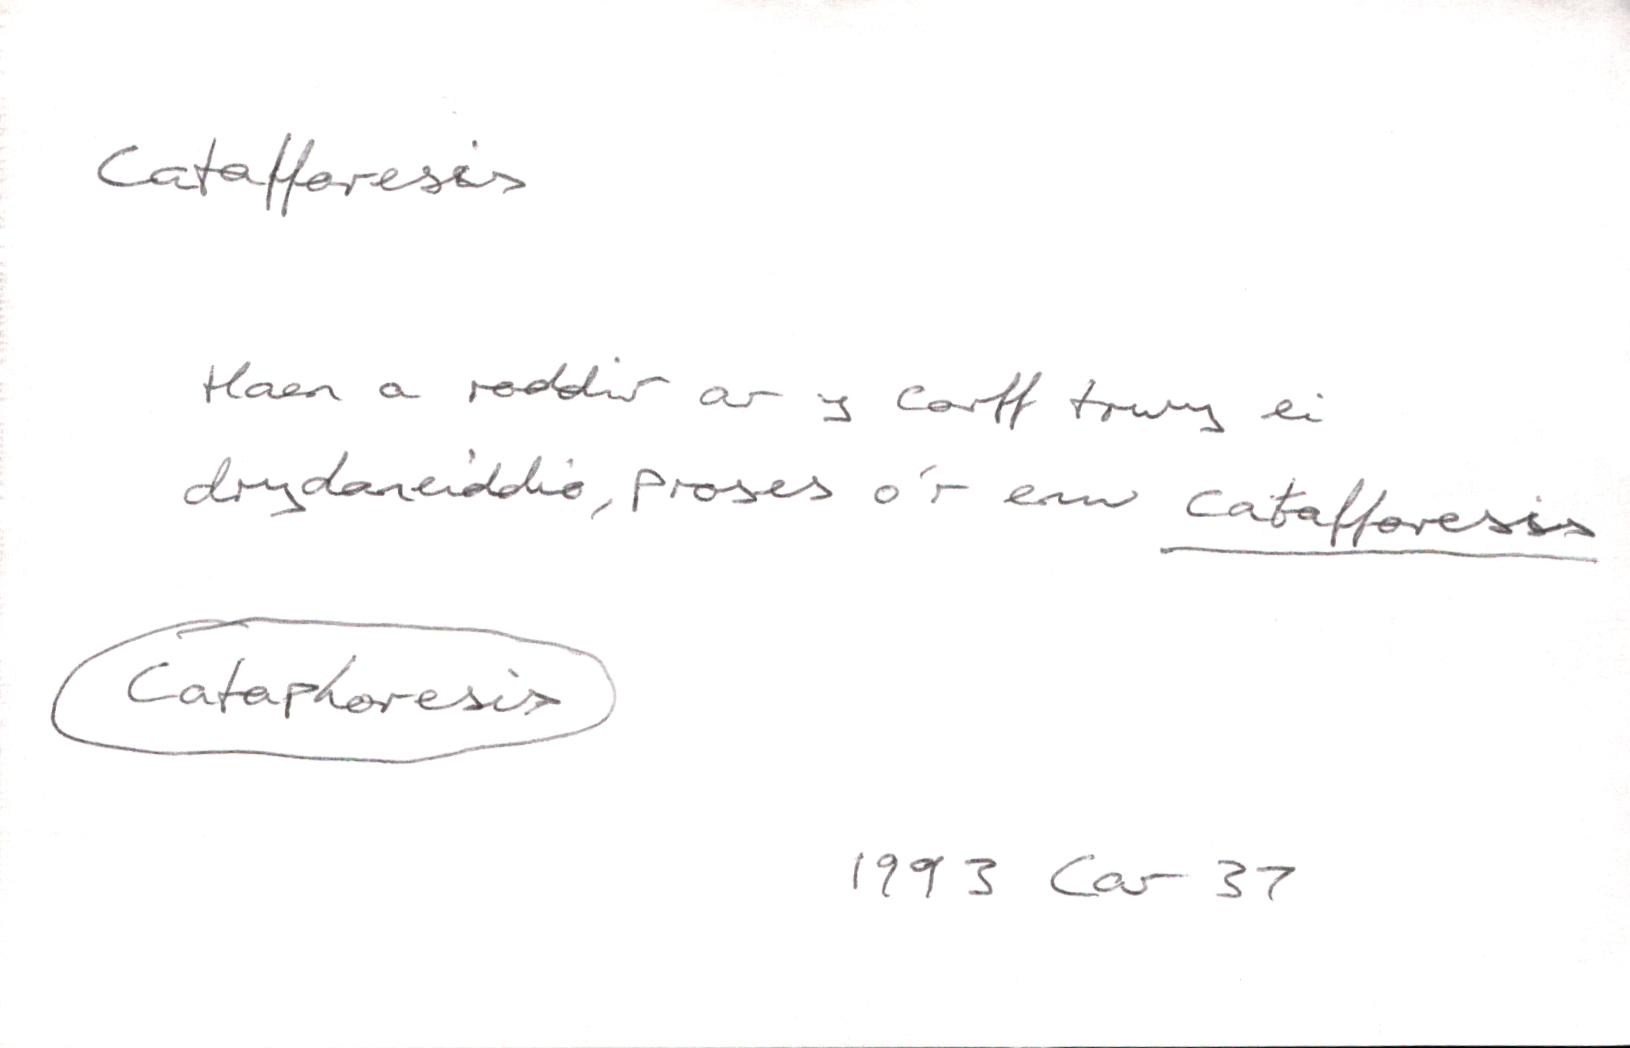 Catafforesis
Haen a roddir ar y corff trwy ei
drydaneiddio, proses o'r enw catafforesis
Cataphoresis
1993 Car 37